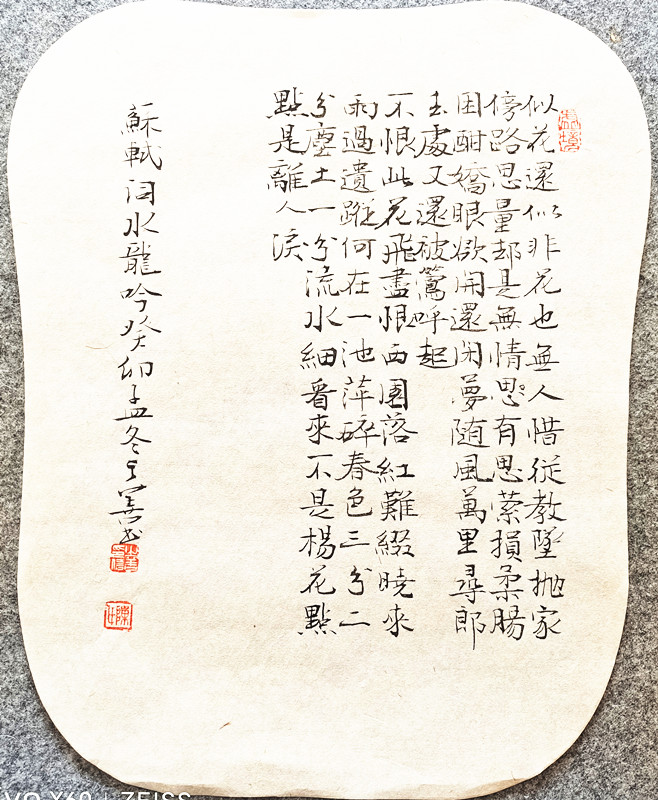 似花還似非花也無人惜從教墜抛家
傍路思量却是無情思有思萦損柔腸
困酣嬌眼欲開還閉夢随風萬里尋郎
去處又還被鶯呼起
不恨此花飛盡恨西園落紅難綴曉来
雨過遺蹤何在一池萍碎春色三分二
分塵土一分流水細看来不是楊花點
點是離人淚
蘇軾词水龍吟癸卯孟冬善书
ZEISS